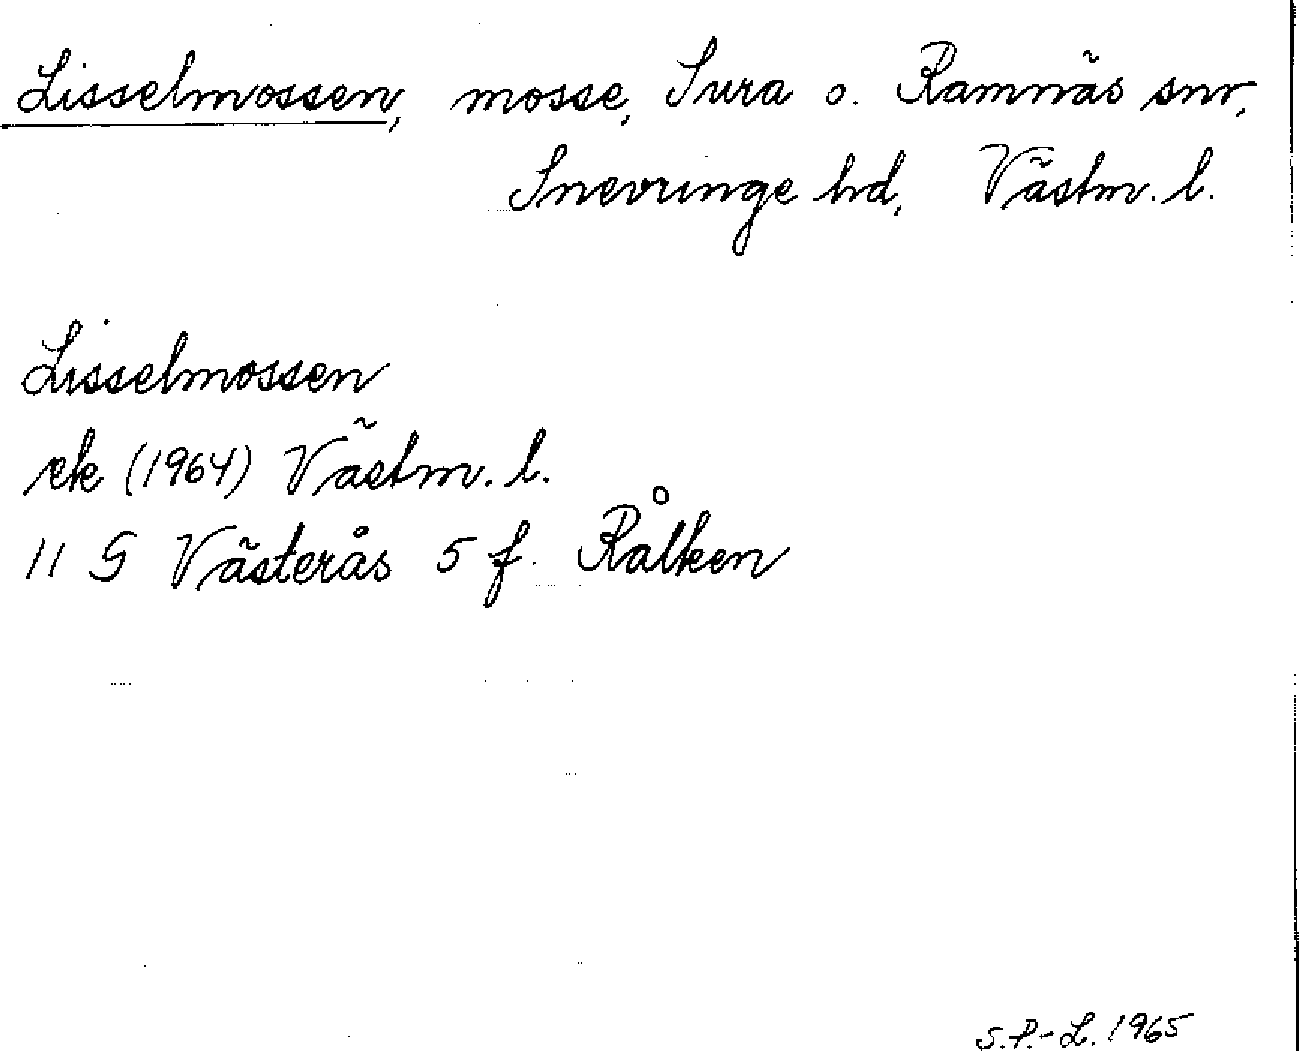 Lisselmossen, mosse, Sura o. Ramnäs snr,
Snevringe hd, Västm. l.
Lisselmossen
ek (1964) Västm. l.
11 G Västerås 5 f. Rålken
S.P.-L. 1965